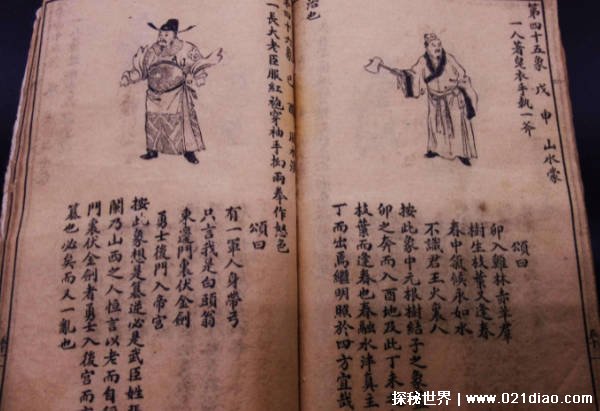 第四十五象 戊申 山水蒙
一人著衣手執一斧
頌曰
卯入雞林亦羊群
樹生枝葉又逢春
春中氣候永如水
不識君王火東八
按此象中元根樹結子之象
卯之奔而入酉地及此丁未
枝葉而逢春也春融水津真主
丁而出焉繼明照於四方宜哉
治也
四十象 己酉
一長大老臣服紅袍穿袖手拘兩拳作怒色
頌曰
有一軍人身帶弓
只言我是白頭翁
東邊門裏伏金劍
勇士後門入帝宮
按此象想是篡逆必是武臣姓
乃山西之人恒言以老而自
門裏伏金劍者勇士入後宮而
篡也必矣而又一亂也
探秘世界 | www.021diao.com